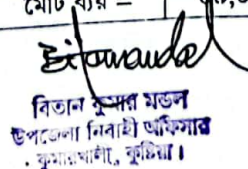 মোট ব্যয় =
বিতান কুমার মন্ডল
উপজেলা নির্বাহী অফিসার
কুমারখালী, কুষ্টিয়া।